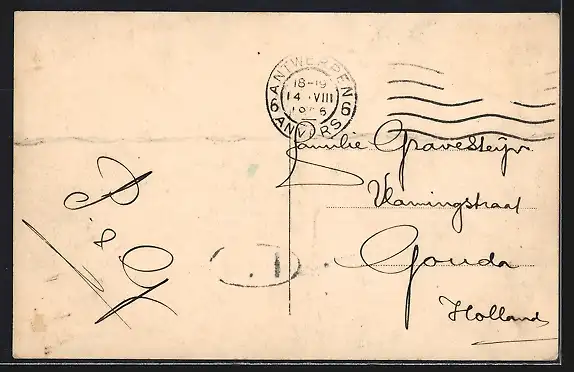 ANTWERPEN
18-19
14 VIII
6 6
ANVERS
Familie Gravesteijn
Vlamingstraat
Gouda
Holland